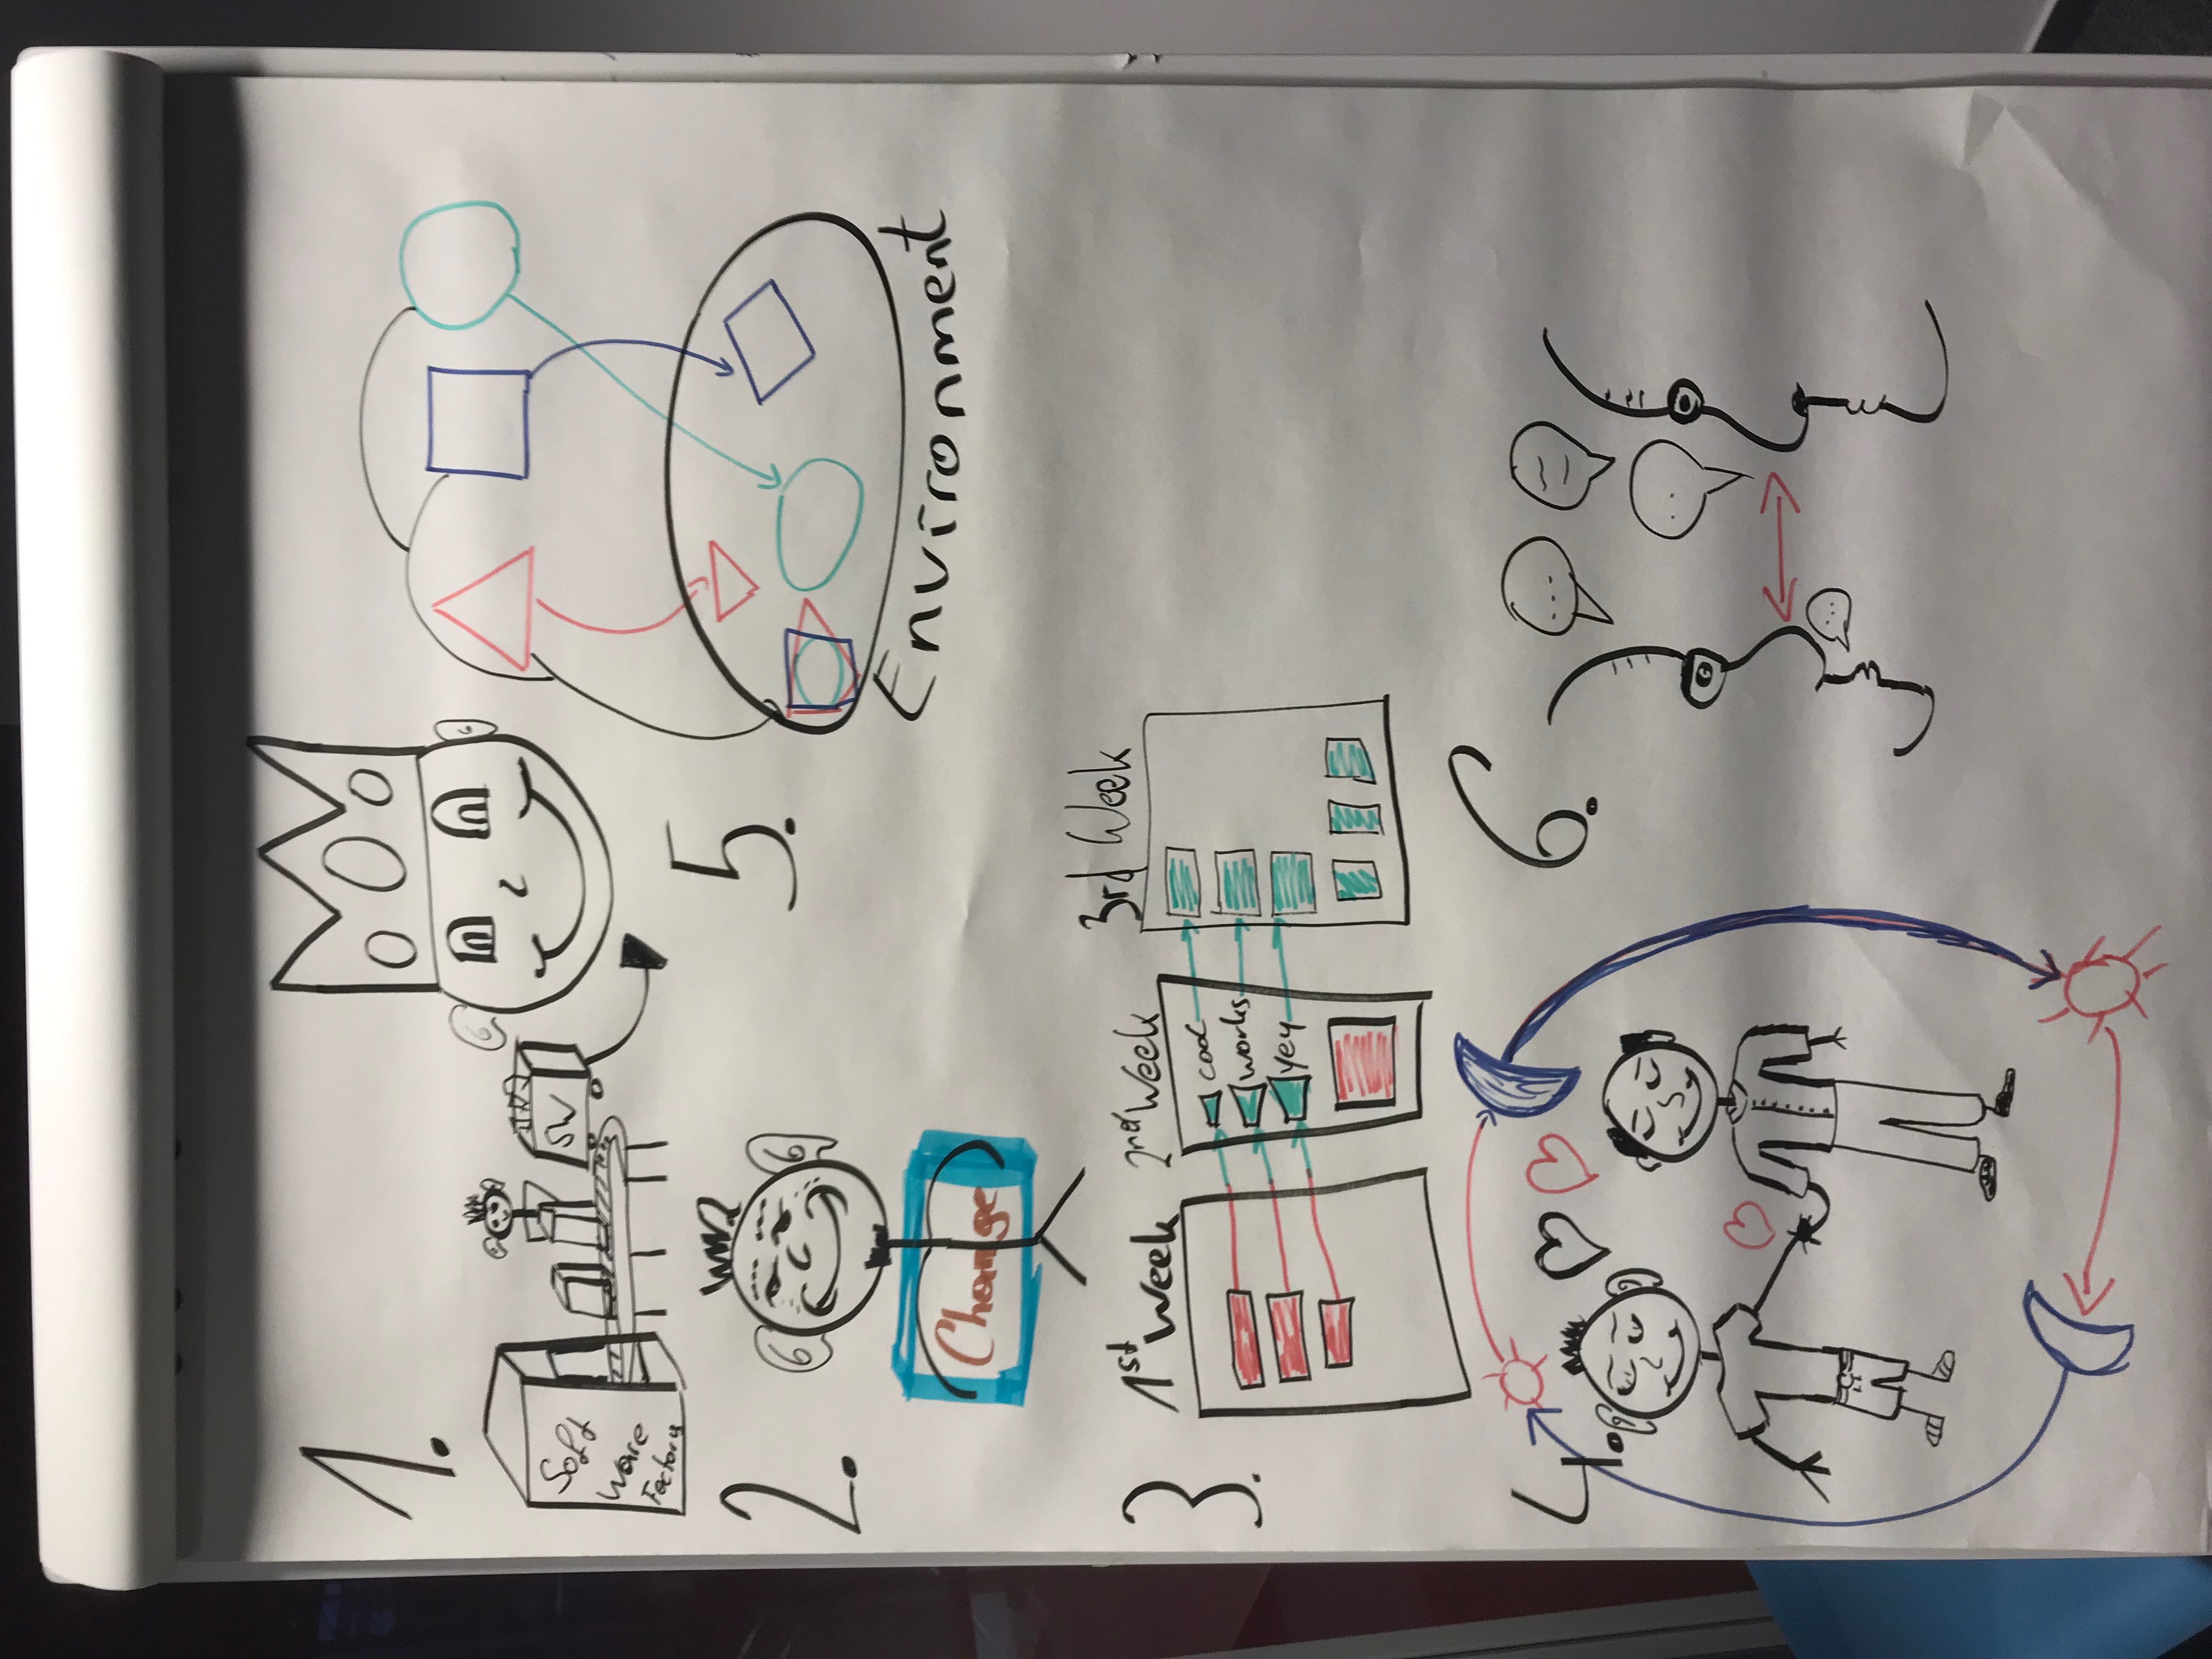 1.
Soft
ware
Factory
SW
2.
Change
3.
1st Week
2nd Week
3rd Week
cool
works
Yey
4.
5.
Environment
6.